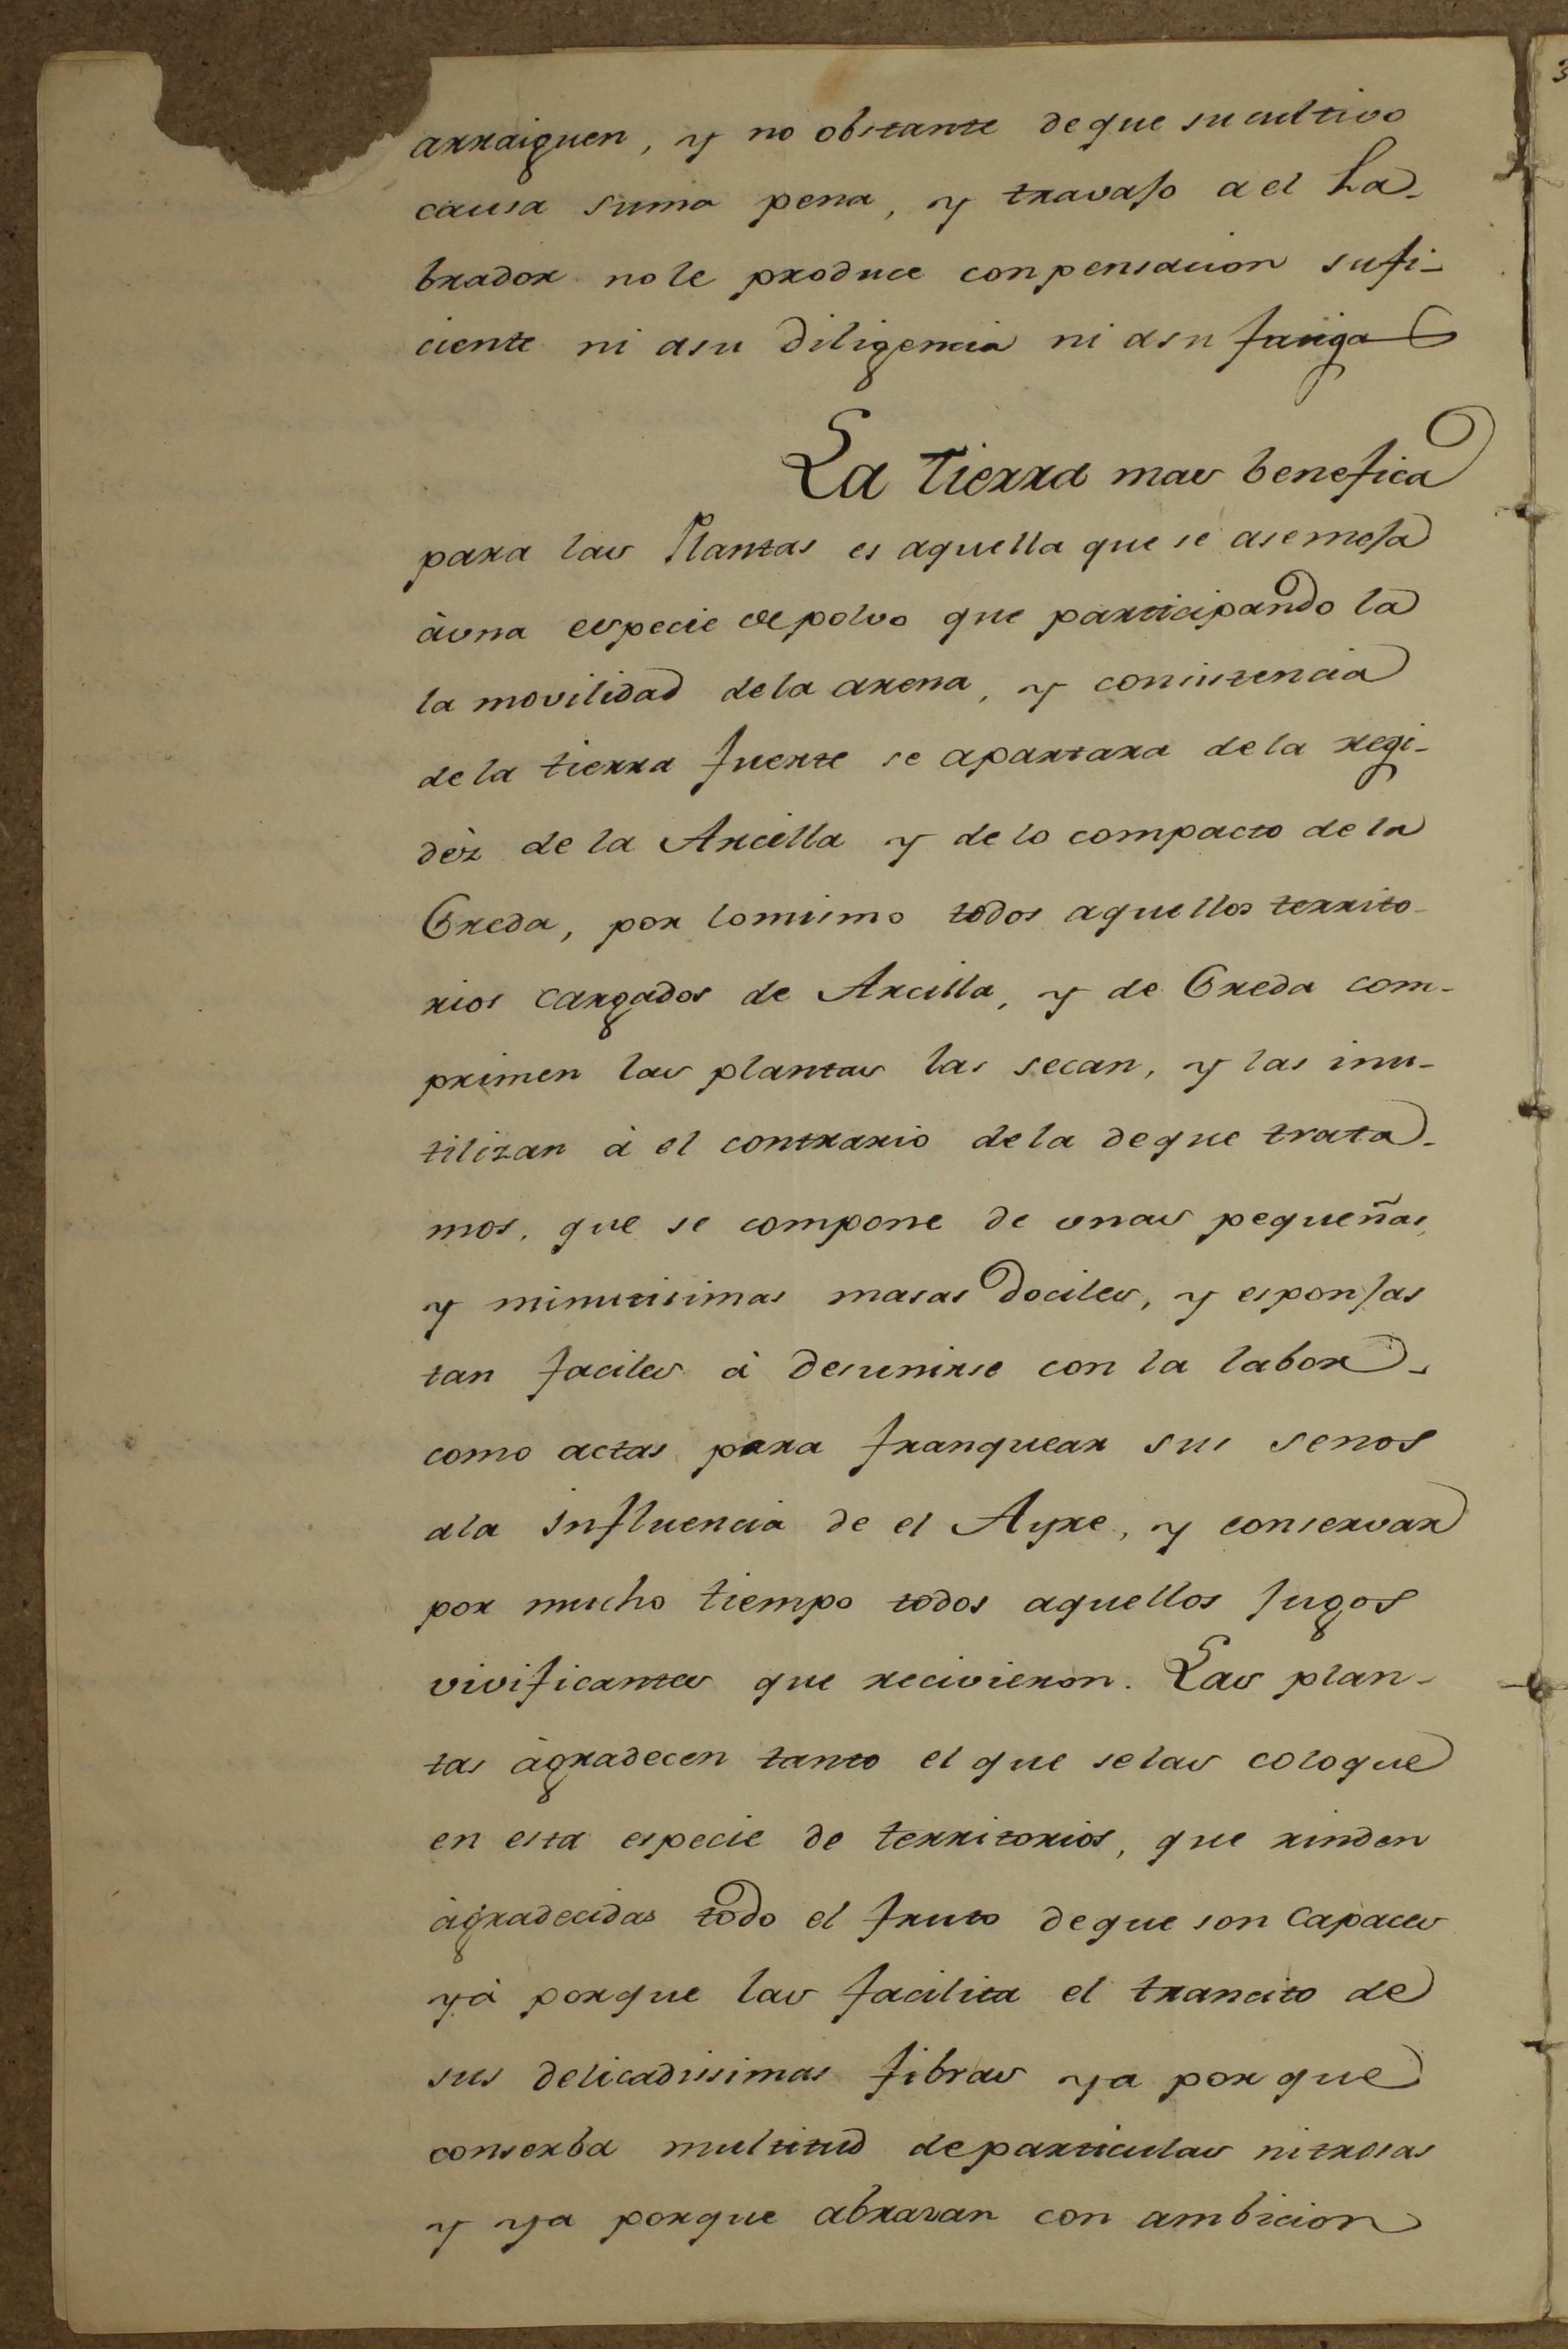 arraiguen, y no obstante deque sucultivo
causa suma pena, y travajo a el La-
brador nole produce conpensacion sufi-
ciente ni asu diligencia ni asu fatiga
La tierra mas benefica
para las Plantas es aquella que se asemeja
àuna especie depolvo que participando la
la movilidad dela arena, y consistencia
de la tierra fuerte se apartara de la regi-
dèz de la Arcilla y de lo compacto de la
Greda, por lomismo todos aquellos territo-
rios cargados de Arcilla, y de Greda com-
primen las plantas las secan, y las inu-
tilizan à el contrario dela deque trata-
mos, que se compone de unas pequeñas,
y minutisimas masas dociles, y esponjas
tan faciles à desunirse con la labor
como actas para franquear sus senos
ala influencia de el Ayre, y conservar
por mucho tiempo todos aquellos jugos
vivificantes que recivieron. Las plan-
tas àgradecen tanto el que selas coloque
en esta especie de territorios, que rinden
àgradecidas todo el fruto deque son capaces
yà porque las facilita el trancito de
sus delicadissimas fibras ya porque
conserba multitud departiculas nitrosas
y ya porque abrazan con ambicion
3